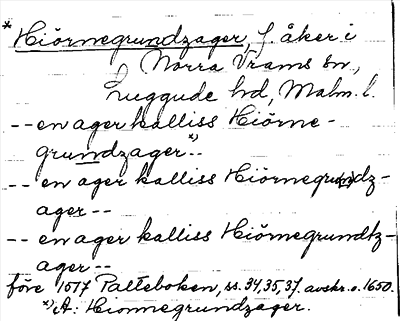 * Hiörnegrundzager, f. åker i
Norra Vrams sn,
Luggude hd, Malm. l.
-- en ager kalliss Hiörne-
grundzager x) --
-- en ager kalliss Hiörnegru(n)dz-
ager --
-- en ager kalliss Hiörnegrundtz-
ager --
före 1517 Palteboken, ss. 34, 35, 37. avskr. o. 1650.
x) A: Hionnegrundzager.